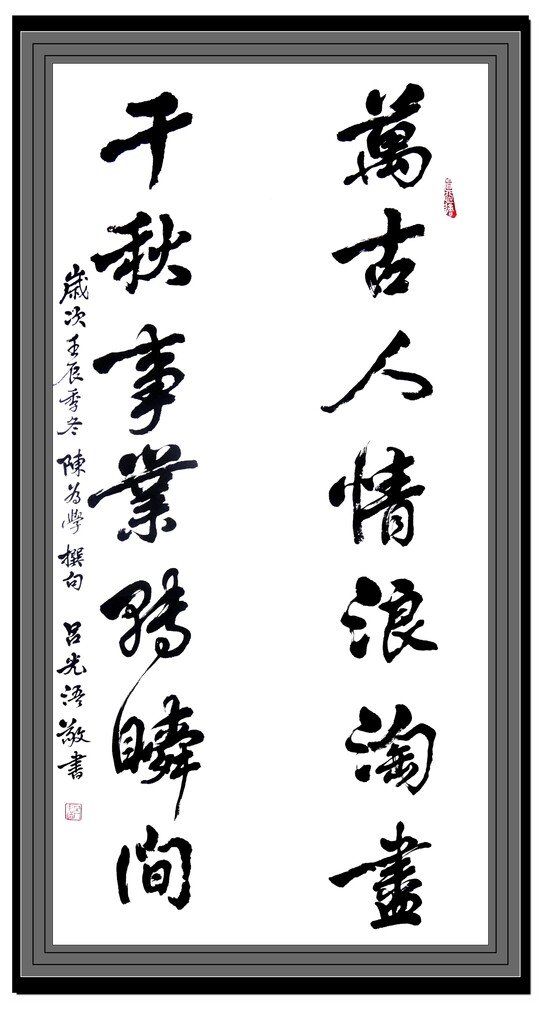 萬古人情浪淘盡
千秋事業轉瞬間
歲次壬辰季冬 陳為學 撰句 呂光浯 敬書